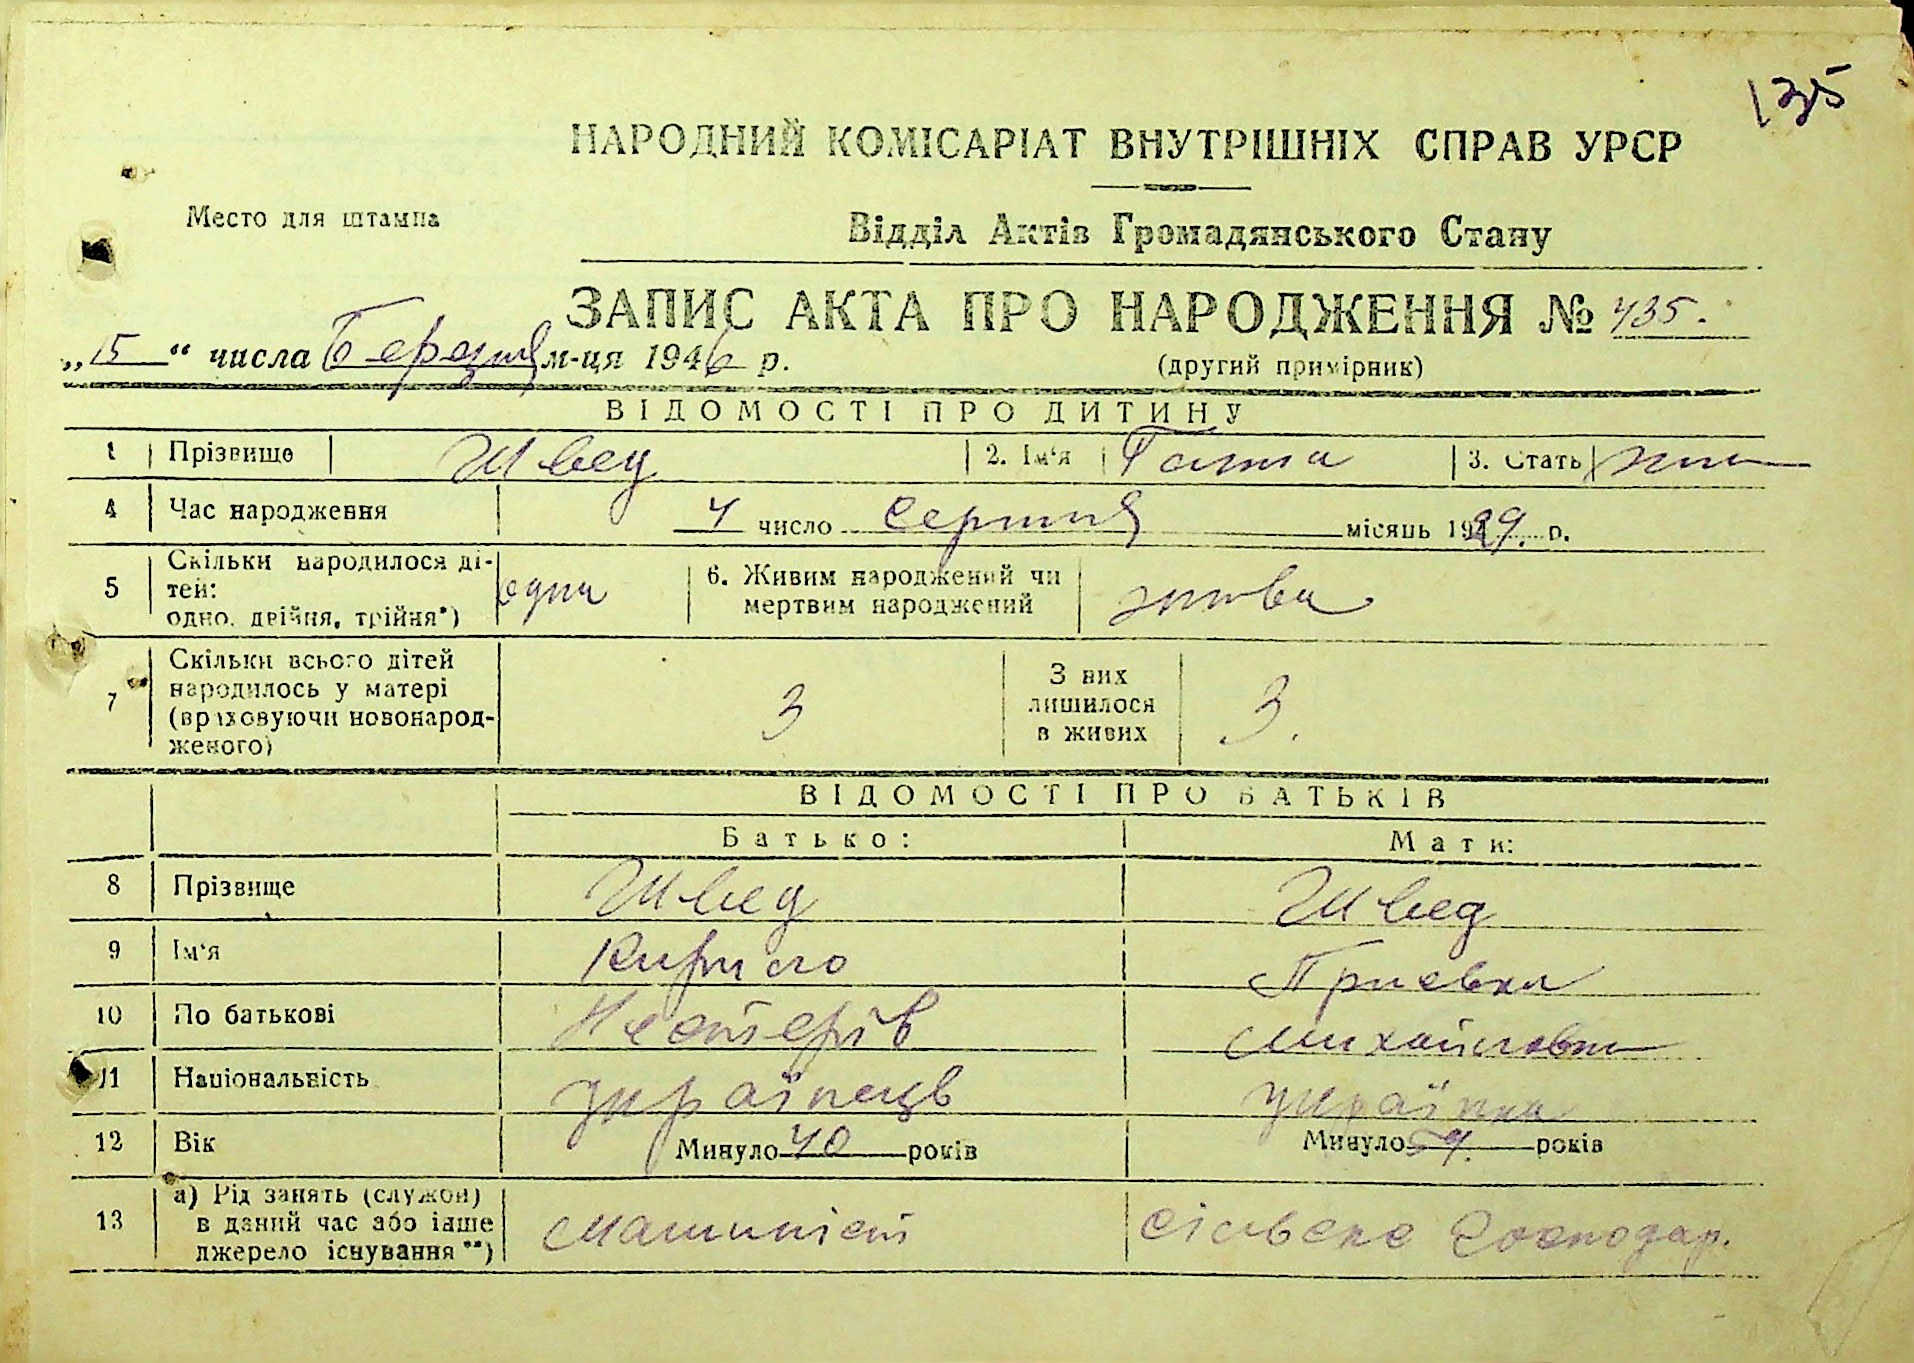 135
НАРОДНИЙ КОМІСАРІАТ ВНУТРІШНІХ СПРАВ УРСР
Место для штампа
Відділ Актів Громадянського Стану
ЗАПИС АКТА ПРО НАРОДЖЕННЯ № 435.
„15“ числа Березня м-ця 1946 р.
(другий примірник)
ВІДОМОСТІ ПРО ДИТИНУ
1 Прізвище Швед 2. Ім'я Ганна 3. Стать жін
4 Час народження 4 число серпня місяць 1929. р.
5 Скільки народилося ді-
тей:
одно, двійня, трійня*) одна
6. Живим народжений чи
мертвим народжений жива
7 Скільки всього дітей
народилось у матері
(враховуючи новонарод-
женого) 3
З них
лишилося
в живих 3.
ВІДОМОСТІ ПРО БАТЬКІВ
Батько: Мати:
8 Прізвище Швед Швед
9 Ім'я Кирило
10 По батькові Нестерів Михайлівна
11 Національність українець українка
12 Вік Минуло 40 років Минуло років
13 а) Рід занять (служби)
в даний час або інше
джерело існування**) машиніст сільське господар.